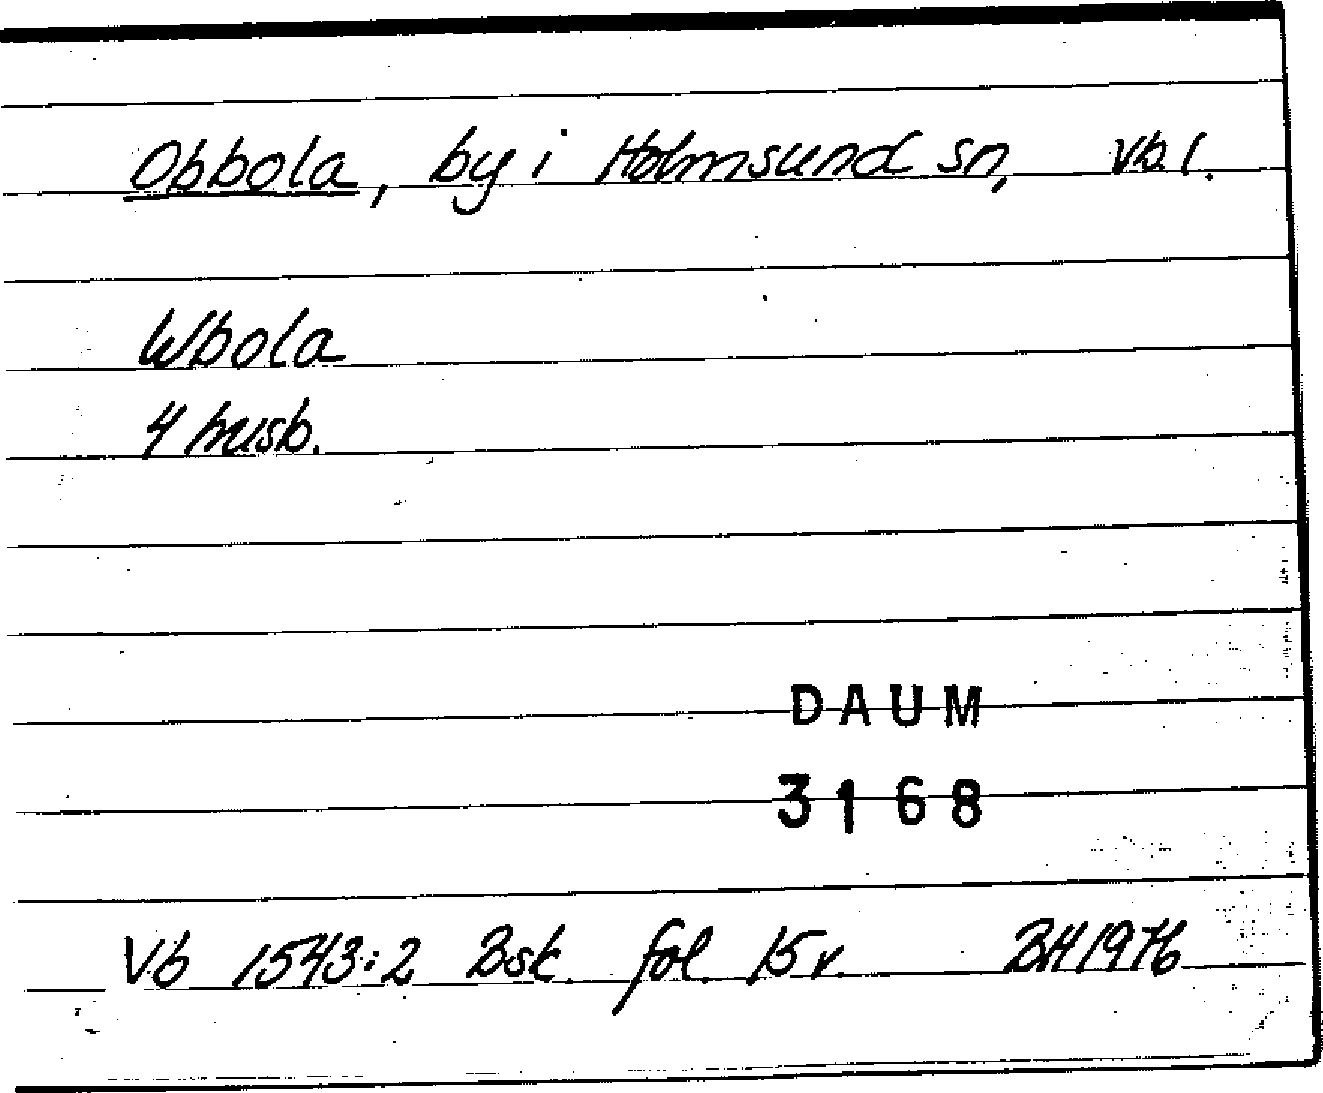 Obbola, by i Holmsund sn, Vb.l.
Wbola
4 husb.
DAUM
3168
Vb 1543:2 Bsk. fol. 15 v. BH 1976